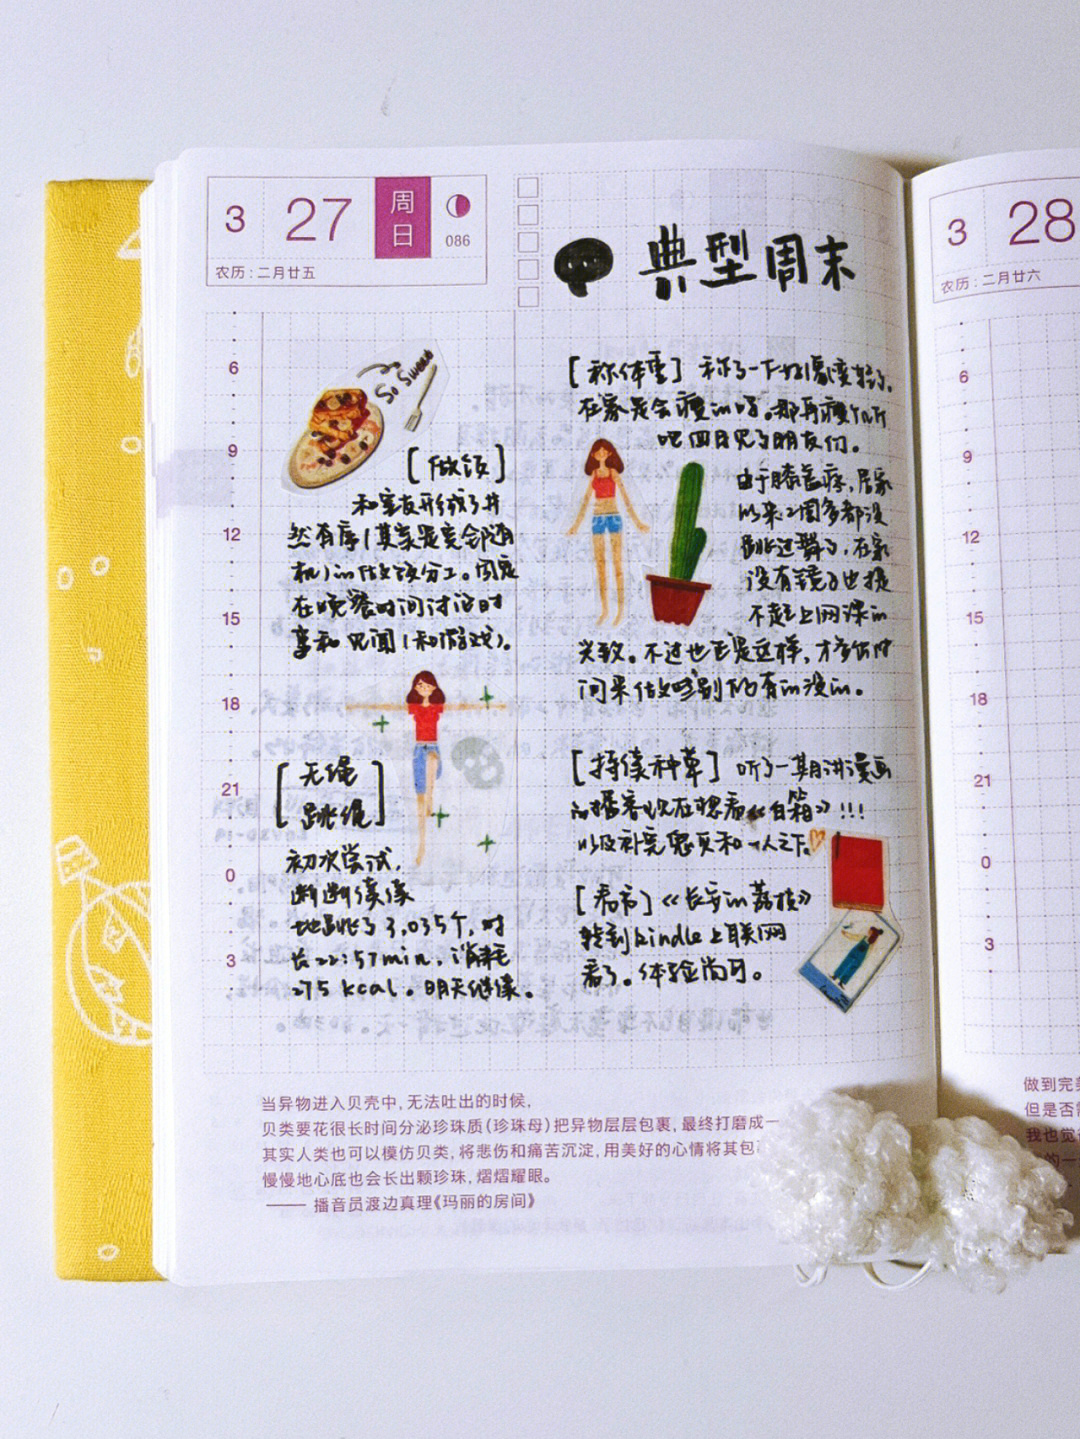 3
27
周日
086
农历：二月廿五
典型周末
6
9
12
15
18
21
0
3
So Sweet
[做饭]
和室友形成了井
然有序（其实是完全随
机）in做饭分工。固定
在晚餐时间讨论时
事和见闻（和游戏）。
[无绳
跳绳]
初次尝试，
断断续续
地跳了3,035个，时
长22:57min，消耗
275 kcal。明天继续。
[称体重] 称了一下好像变轻了，
在家是会瘦in呀。那再瘦个几斤
吧 四月见了朋友们。
由于膝盖疼，居家
以来2周多都没
跳过舞了，在家
没有镜子也提
不起上网课in
兴致。不过也正是这样，才多出时
间来做些别的有in没in。
[持续种草] 听了一期讲漫画
in播客现在想看《白箱》!!!
以及补完恶页和一人之下。
[看书]《长安in荔枝》
转到kindle上联网
看了。体验尚可。
当异物进入贝壳中，无法吐出的时候，
贝类要花很长时间分泌珍珠质（珍珠母）把异物层层包裹，最终打磨成一
其实人类也可以模仿贝类，将悲伤和痛苦沉淀，用美好的心情将其包
慢慢地心底也会长出颗珍珠，熠熠耀眼。
—— 播音员渡边真理《玛丽的房间》
3
28
农历：二月廿六
6
9
12
15
18
21
0
3
做到完美
但是否能
我也觉
的一